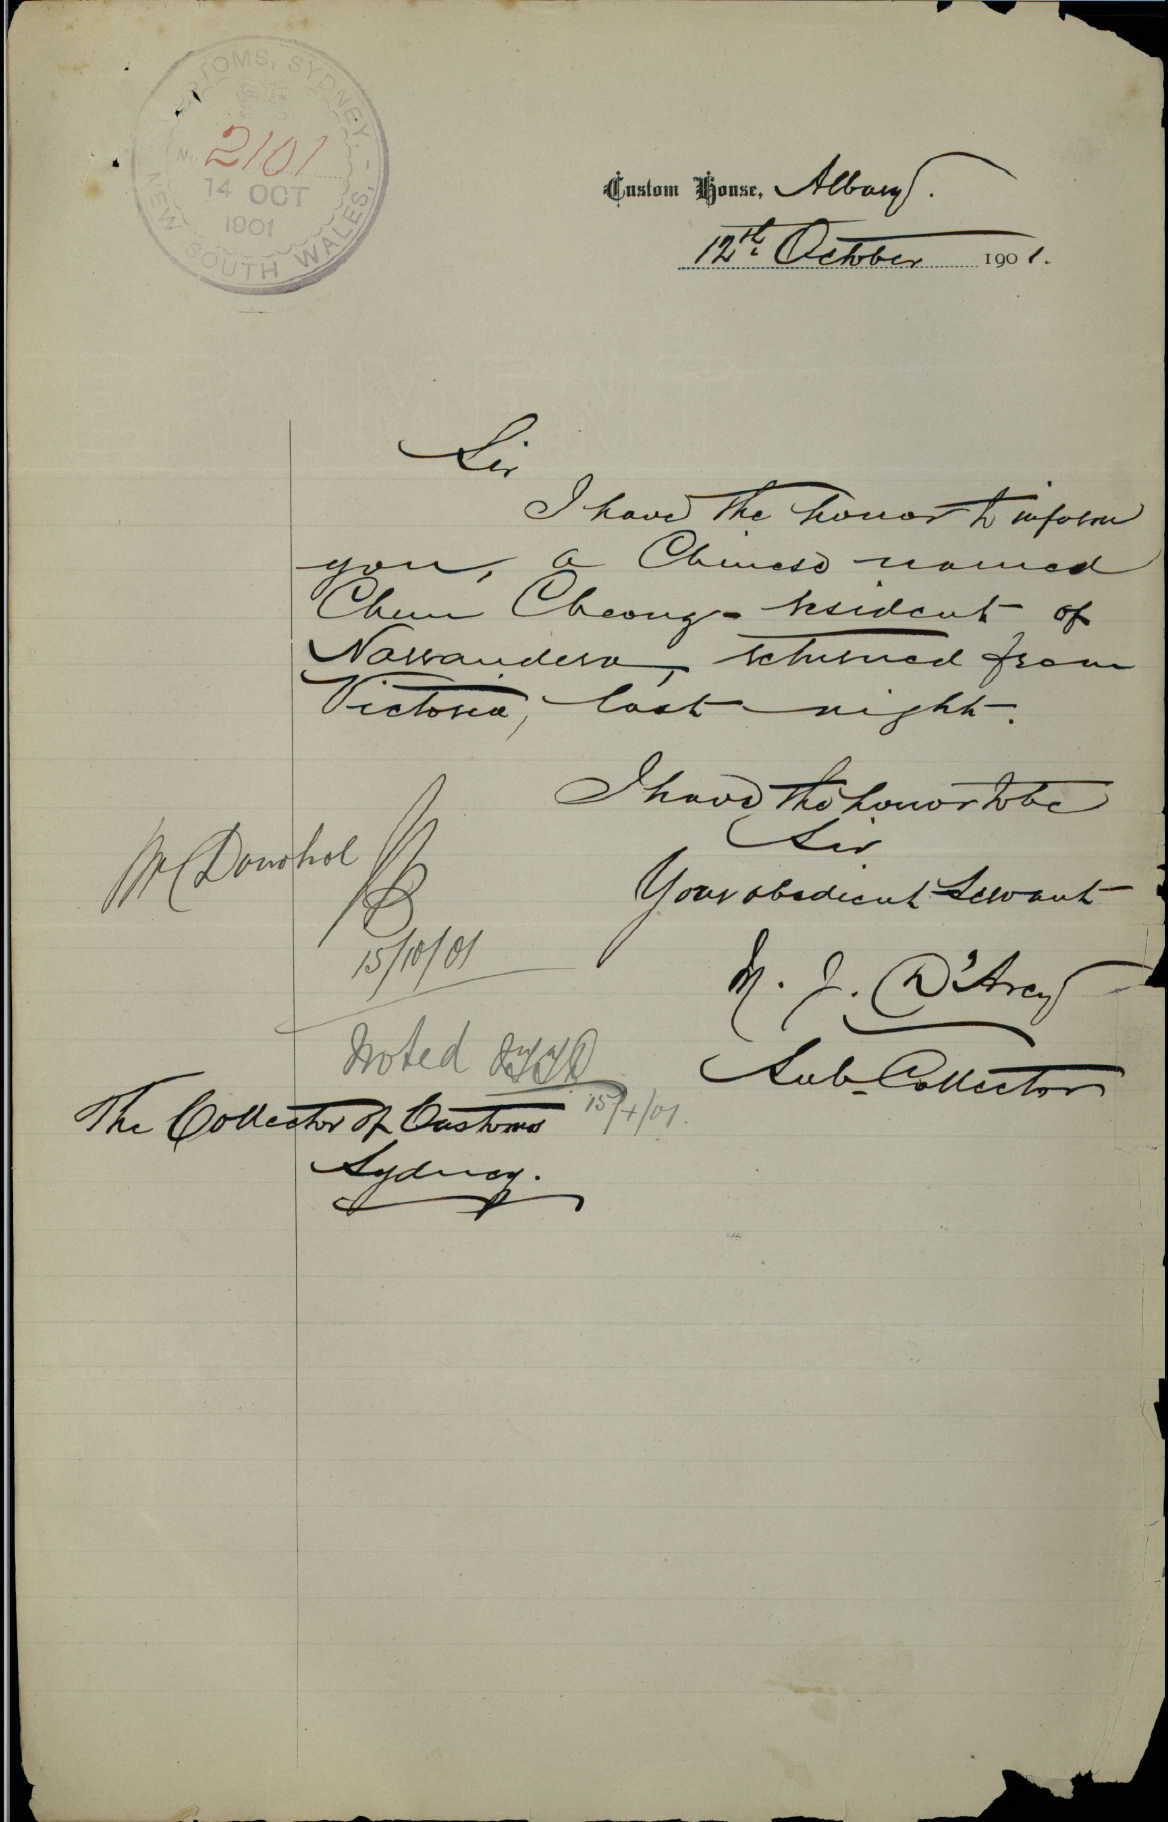 CUSTOMS, SYDNEY,
NEW SOUTH WALES,
2101
14 OCT
1901
Custom House, Albury.
12th October 1901.
Sir
I have the honor to inform
you, a Chinese named
Chun Cheong - resident of
Narrandera, returned from
Victoria, last night.
I have the honor to be
Sir
Your obedient Servant
M. J. D'Arcy
Sub-Collector
Mr Donohoe
15/10/01
Noted
15/x/01.
The Collector of Customs
Sydney.